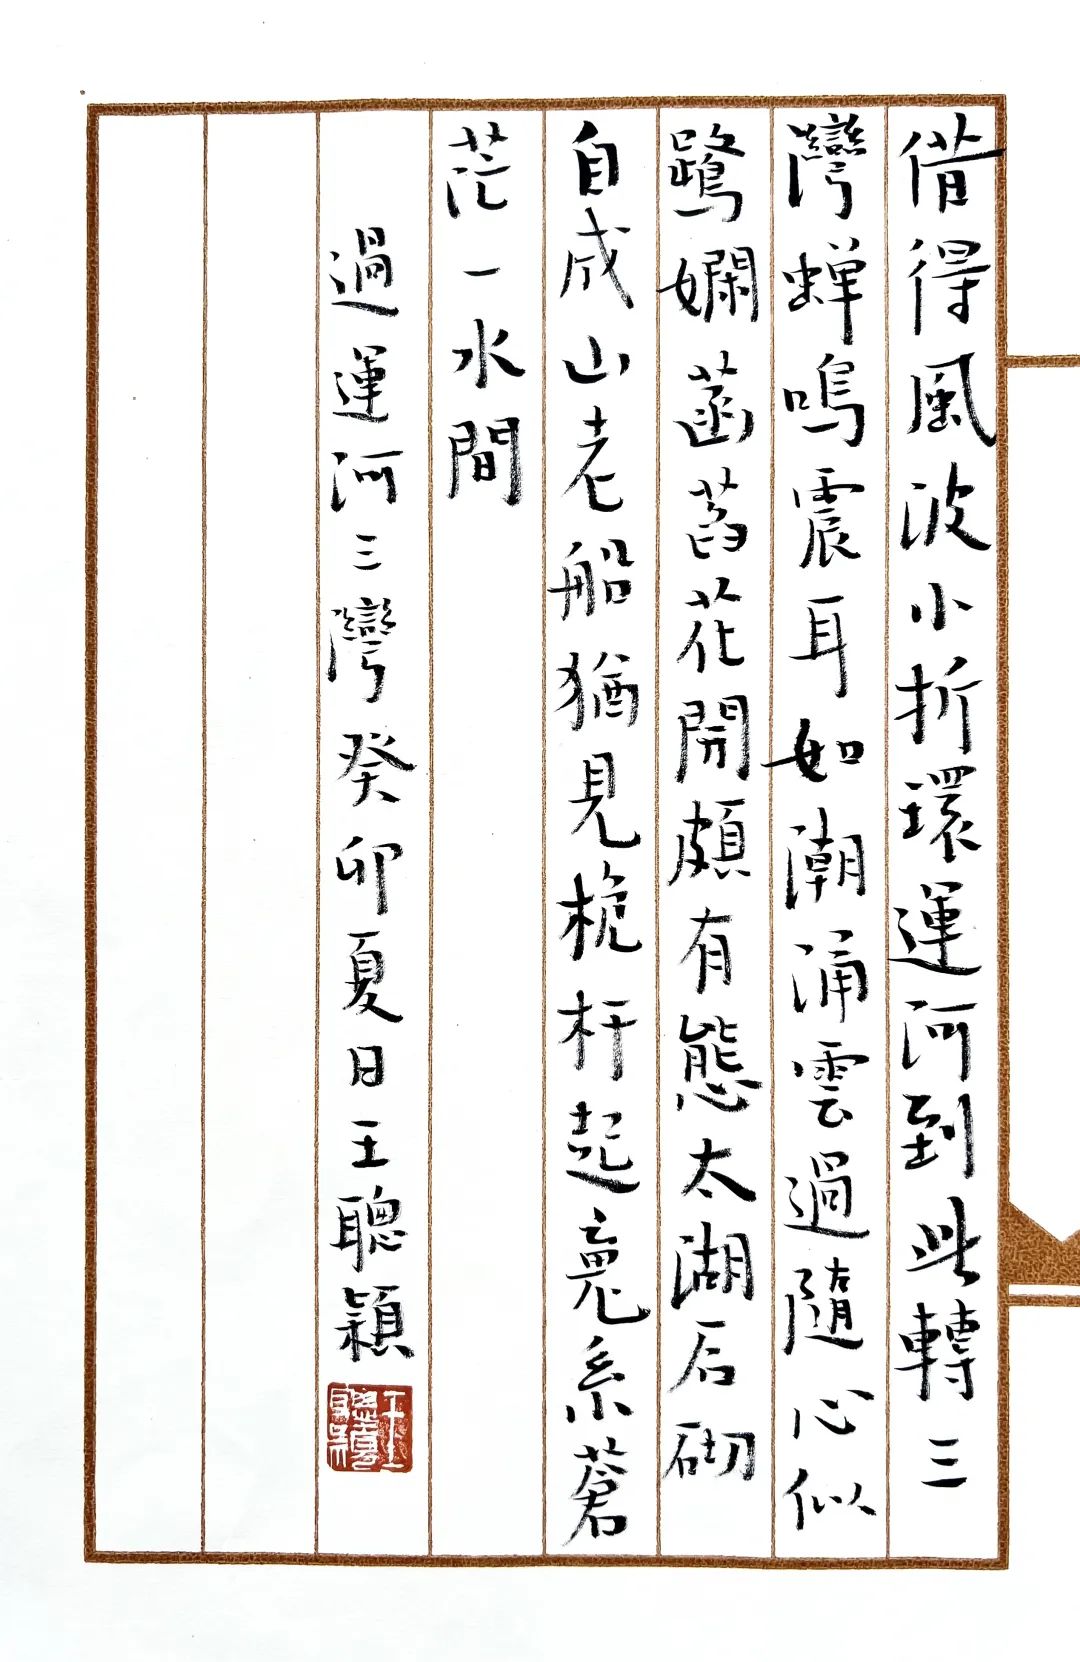 借得風波小折環運河到此轉三
灣蟬鳴震耳如潮涌雲過隨心似
鷺嫻菡萏花開頗有態太湖石砌
自成山老船猶見桅杆起竟系蒼
茫一水間
過運河三灣癸卯夏日王聰穎